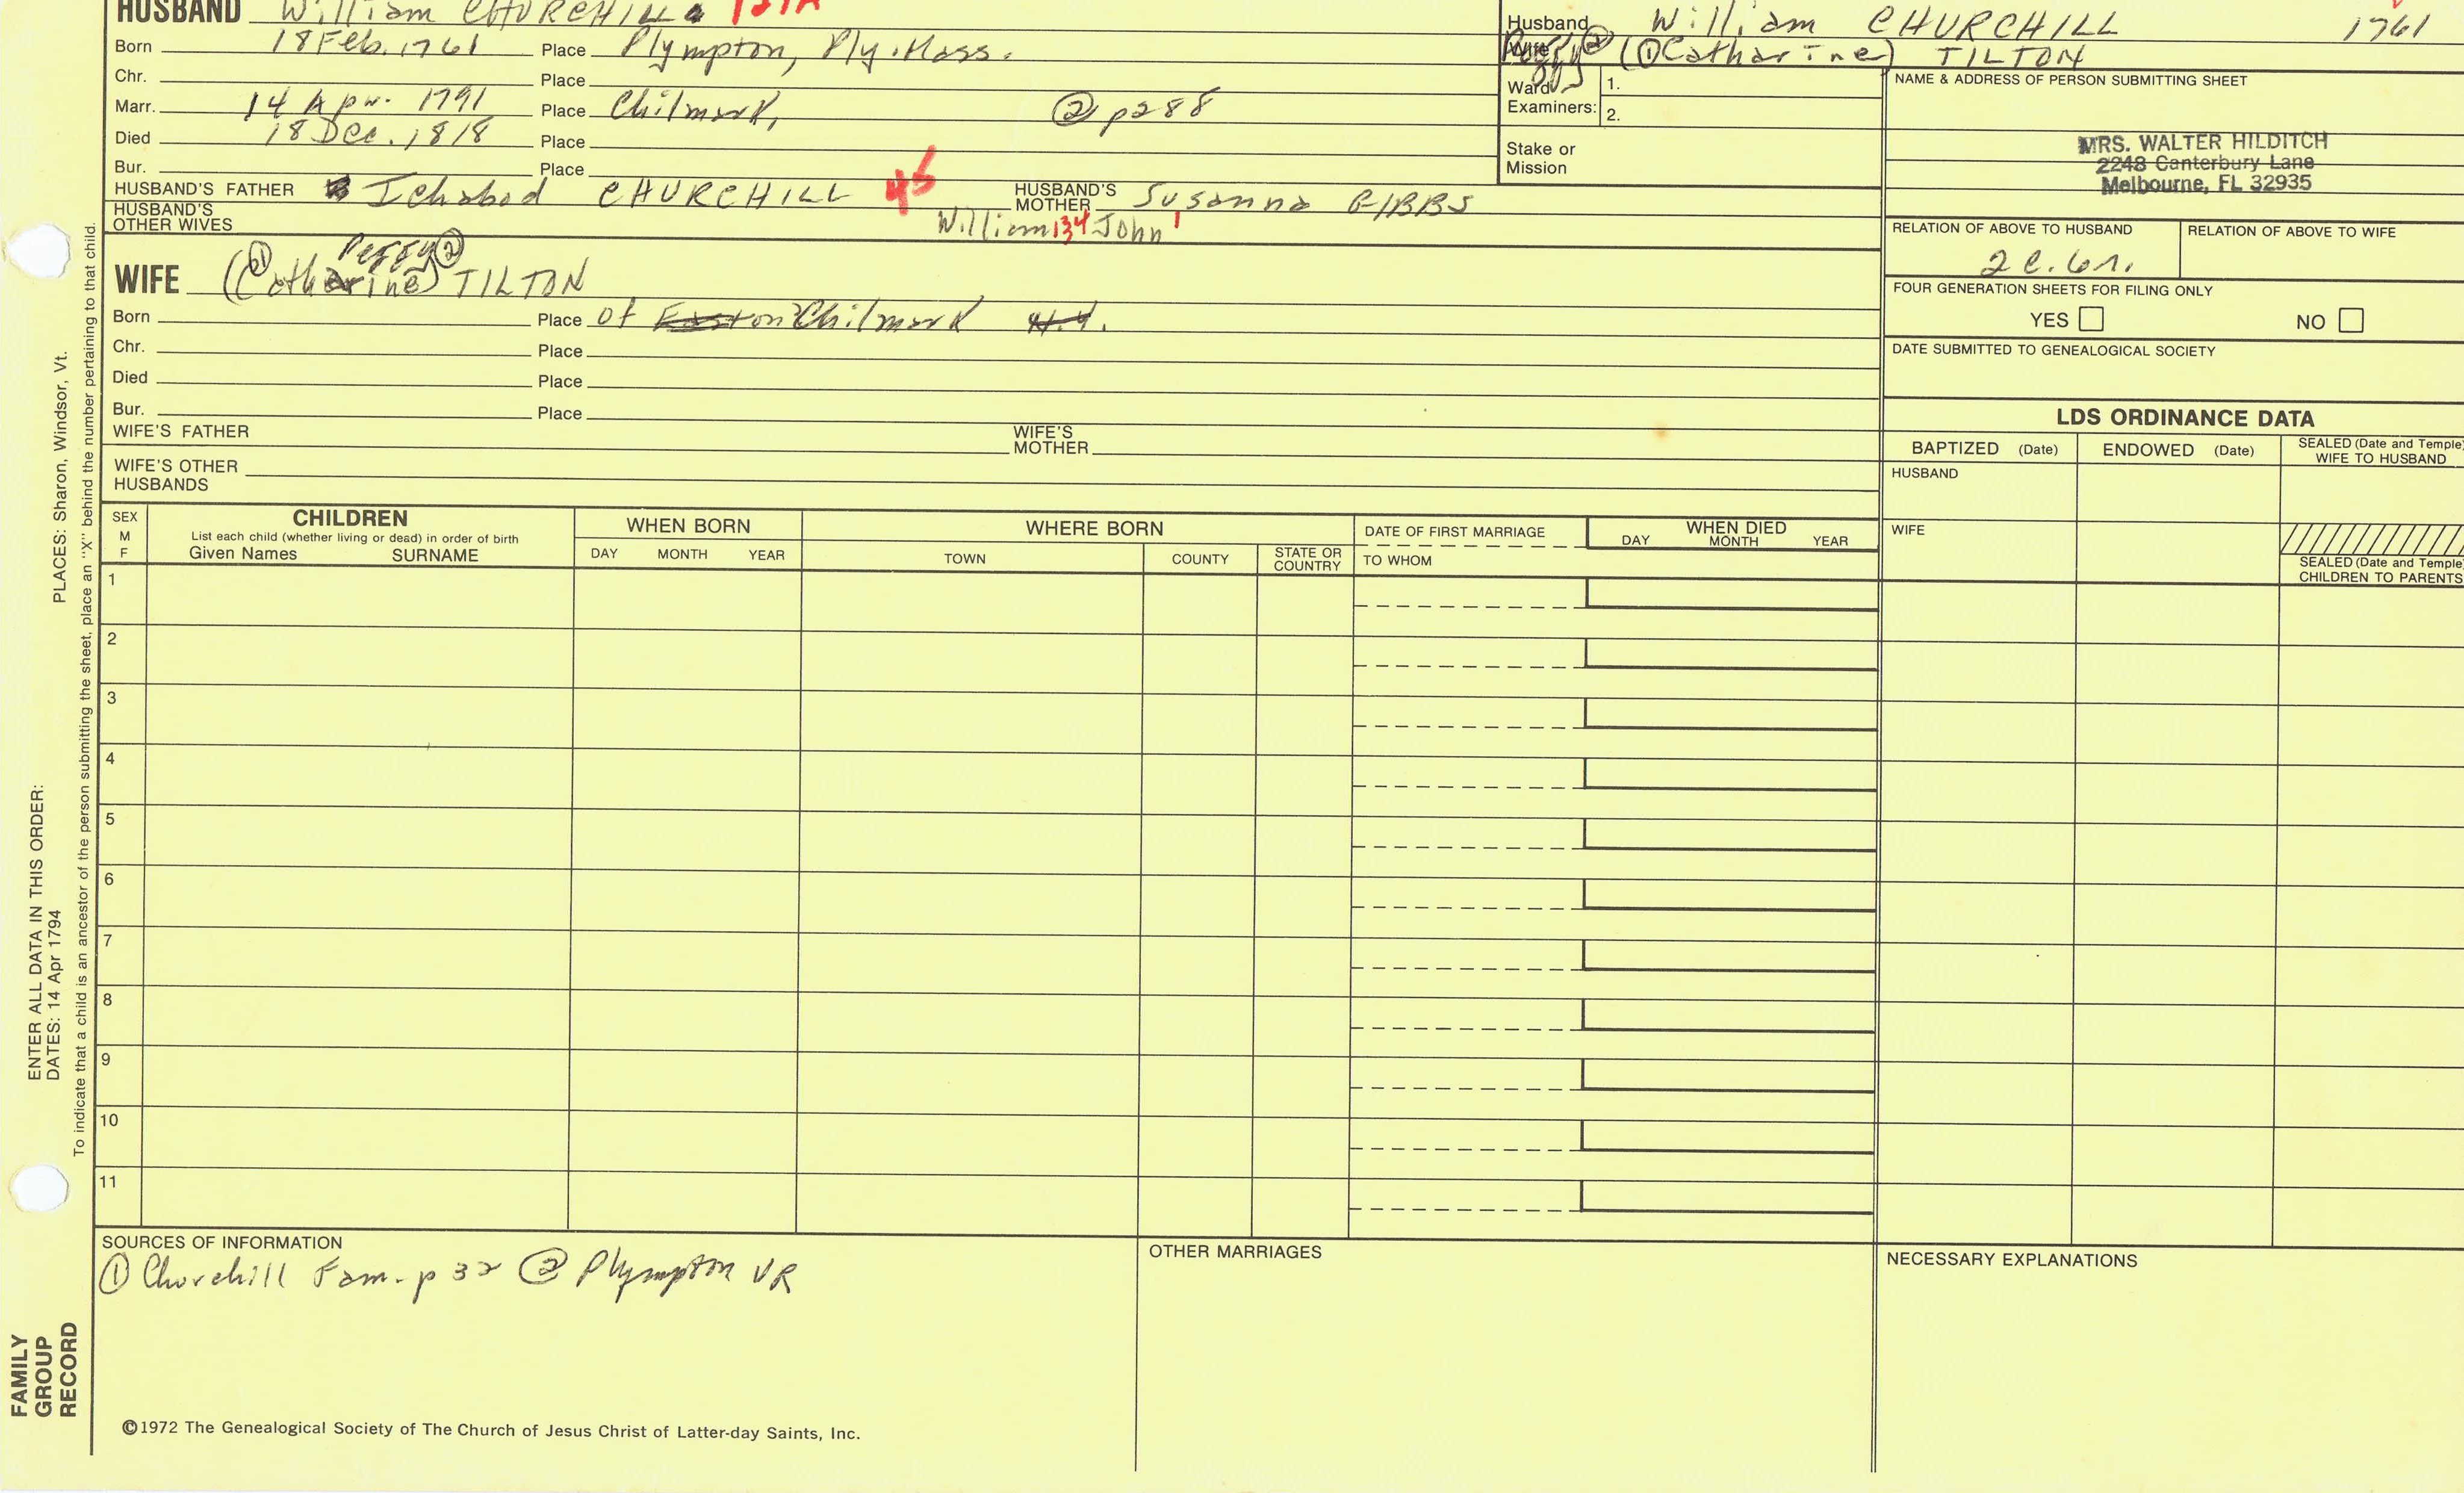 HUSBAND William CHURCHILL
Born 18 Feb. 1761 Place Plympton, Ply. Mass.
Chr. Place
Marr. 14 Apr. 1791 Place Chilmark, ② p288
Died 18 Dec. 1818 Place
Bur. Place
HUSBAND'S FATHER Ichabod CHURCHILL 45 HUSBAND'S MOTHER Susanna GIBBS
HUSBAND'S OTHER WIVES William 134 John 1
Peggy ②
WIFE (① Catharine) TILTON
Born Place of Easton Chilmark N.Y.
Chr. Place
Died Place
Bur. Place
WIFE'S FATHER WIFE'S MOTHER
WIFE'S OTHER HUSBANDS
Husband William CHURCHILL 1761
Wife Peggy ② (① Catharine) TILTON
Ward 1.
Examiners: 2.
Stake or
Mission
NAME & ADDRESS OF PERSON SUBMITTING SHEET
MRS. WALTER HILDITCH
2248 Canterbury Lane
Melbourne, FL 32935
RELATION OF ABOVE TO HUSBAND RELATION OF ABOVE TO WIFE
2c. 6r.
FOUR GENERATION SHEETS FOR FILING ONLY
YES NO
DATE SUBMITTED TO GENEALOGICAL SOCIETY
LDS ORDINANCE DATA
BAPTIZED (Date) ENDOWED (Date) SEALED (Date and Temple) WIFE TO HUSBAND
HUSBAND
WIFE
SEALED (Date and Temple)
CHILDREN TO PARENTS
SEX
M
F
CHILDREN
List each child (whether living or dead) in order of birth
Given Names SURNAME
WHEN BORN
DAY MONTH YEAR
WHERE BORN
TOWN COUNTY STATE OR COUNTRY
DATE OF FIRST MARRIAGE
TO WHOM
WHEN DIED
DAY MONTH YEAR
1
2
3
4
5
6
7
8
9
10
11
SOURCES OF INFORMATION
① Churchill Fam. p 32 ② Plympton VR
OTHER MARRIAGES
NECESSARY EXPLANATIONS
©1972 The Genealogical Society of The Church of Jesus Christ of Latter-day Saints, Inc.
FAMILY
GROUP
RECORD
ENTER ALL DATA IN THIS ORDER:
DATES: 14 Apr 1794
PLACES: Sharon, Windsor, Vt.
To indicate that a child is an ancestor of the person submitting the sheet, place an "X" behind the number pertaining to that child.